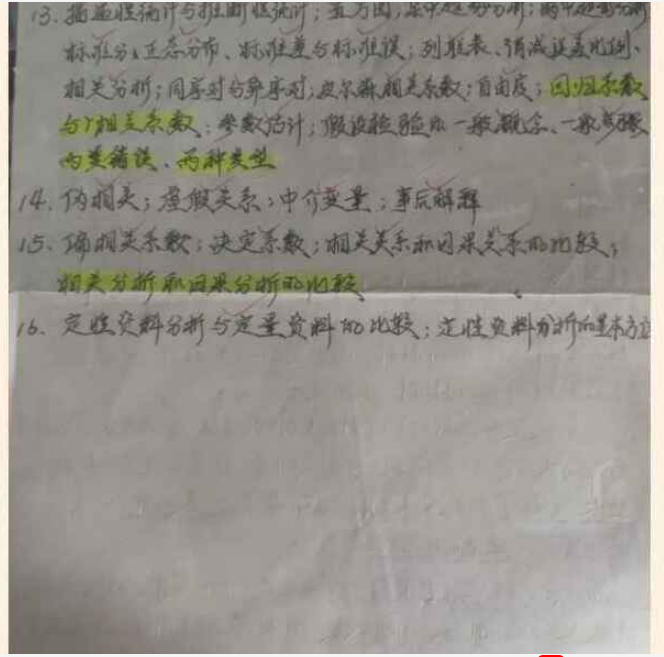 13. 描述性统计与推断性统计；直方图；集中趋势分析；离中趋势分析
标准分、正态分布、标准差与标准误；列联表、消减误差比例、
相关分析；同序对与异序对；皮尔森相关系数；自由度；回归系数
与r相关系数；参数估计；假设检验的一般概念、一般步骤
两类错误、两种类型
14. 伪相关；虚假关系；中介变量；事后解释
15. 偏相关系数；决定系数；相关关系和因果关系的比较；
相关分析和因果分析的比较
16. 定性资料分析与定量资料的比较；定性资料分析的基本方法